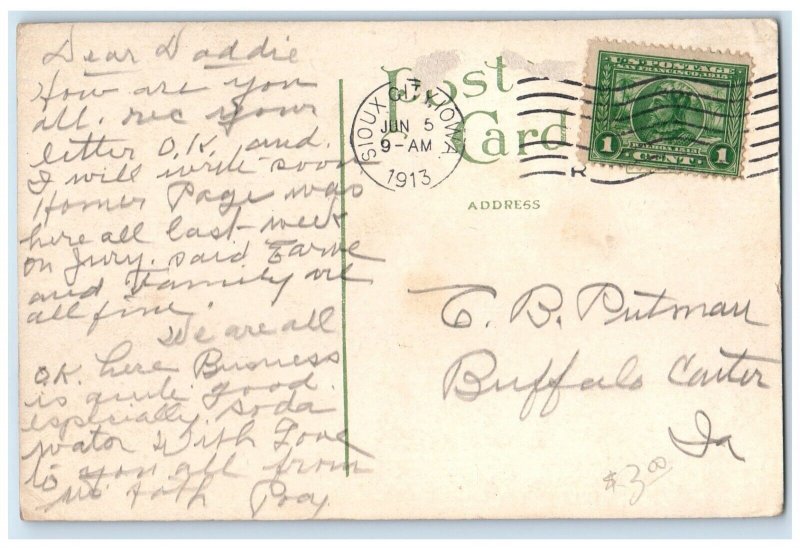 Dear Daddie
How are you
all. rec your
letter O.K. and
I will write soon
Homer Page was
here all last week
on Jury. said
and Family
all fine.
We are all
O.K. here Business
is quite good
especially soda
water With Love
to you all from
us both
Post
Card
ADDRESS
SIOUX CITY, IOWA.
JUN 5
9-AM
1913
U.S. POSTAGE
SAN FRANCISCO, 1915
BALBOA 1513
1 CENT 1
C. B. Putman
Buffalo Center
Ia
$3.00